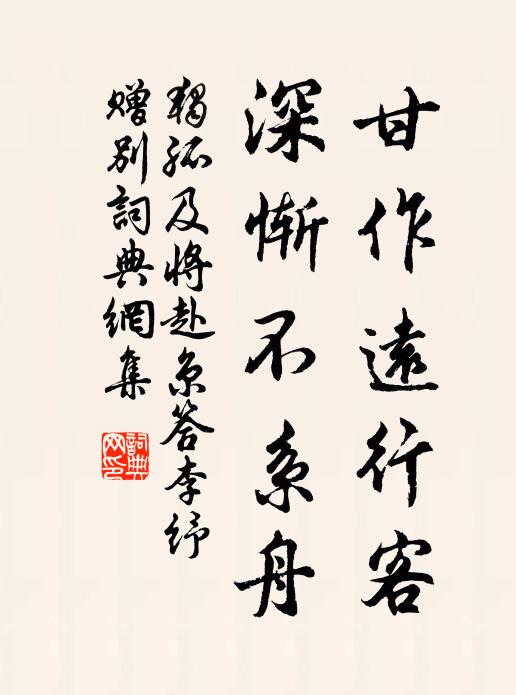 甘作遠行客
深慚不系舟
獨孤及將赴京答李紓
贈別詞典網集
詞典网印